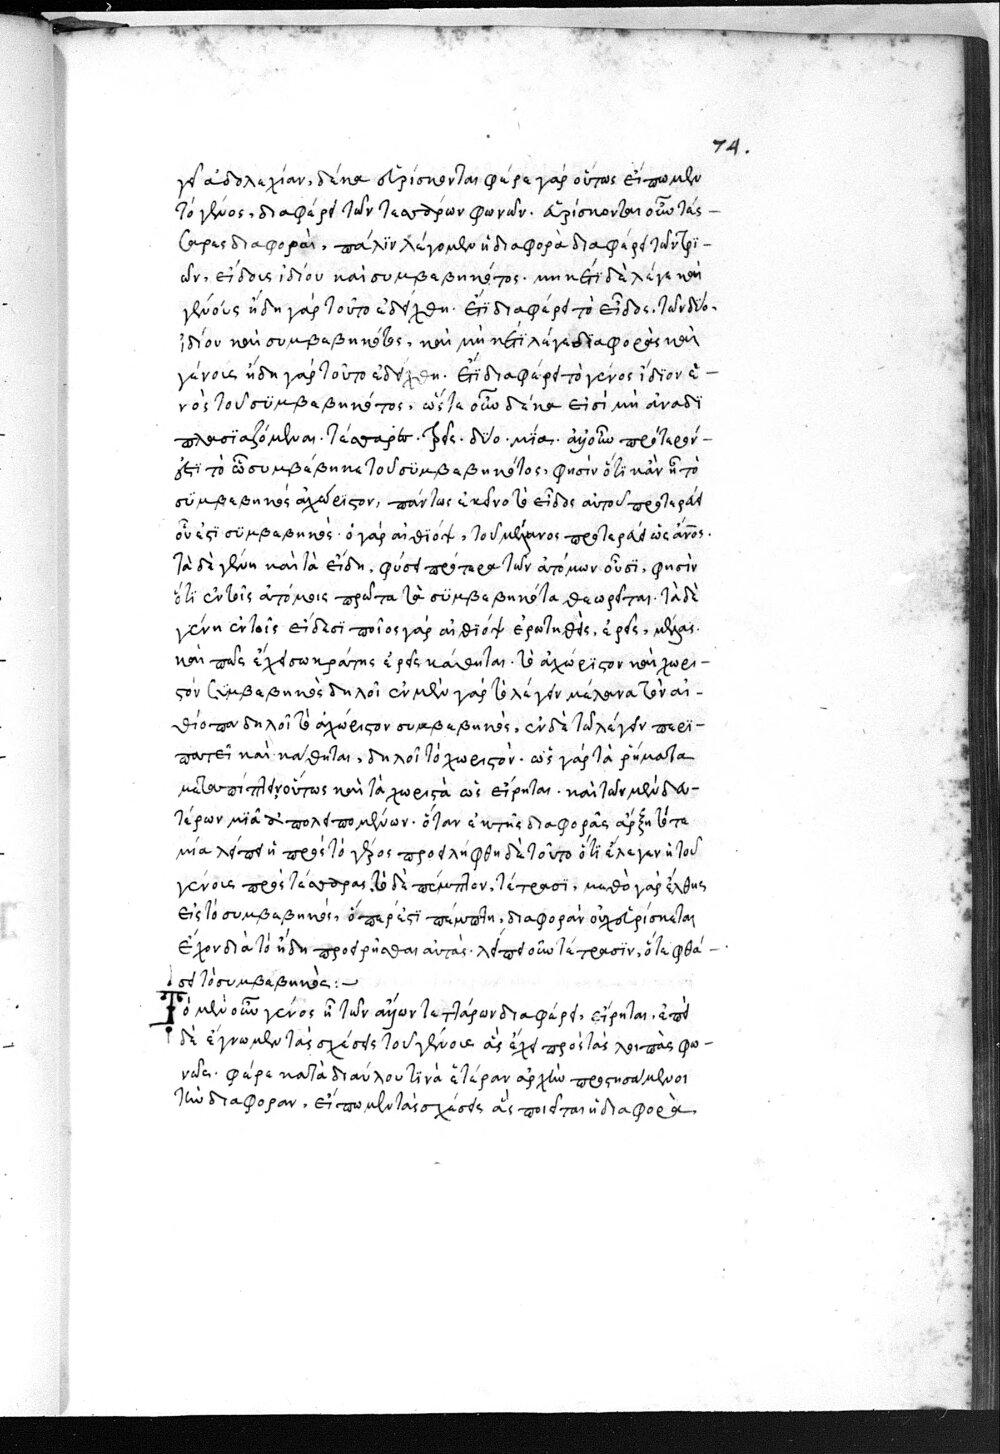 74.
γει ἀδολεχίαν, δέκα εὑρίσκονται φέρε γὰρ οὕτως εἴπωμεν
τὸ γένος, διαφέρει τῶν τεσσάρων φωνῶν. εὑρίσκονται οὖν τέσ-
σαρες διαφοραὶ, πάλϊν λέγομεν ἡ διαφορὰ διαφέρει τῶν τρϊ-
ῶν, εἴδους ἰδίου καὶ συμβεβηκότος. μηκέτϊ δὲ λέγε καὶ
γένους ἤδη γὰρ τοῦτο ἐδείχθη. ἔτϊ διαφέρει τὸ εἶδος, τῶν δύο,
ἰδίου καὶ συμβεβηκότος, καὶ μὴκέτϊ λέγε διαφορᾶς καὶ
γένους ἤδη γὰρ τοῦτο ἐδείχθη. ἔτϊ διαφέρει τὸ γένος ἴδϊον ἑ-
νὸς τοῦ συμβεβηκότος, ὥστε οὖν δέκα εἰσὶ μὴ ἀναδϊ
πλασϊαζόμεναι. τέσσαρες. τρεῖς. δύο. μία.
τὸ συμβέβηκε τοῦ συμβεβηκότος, φησὶν ὅτι κἂν ᾖ τὸ
συμβεβηκὸς ἀχώριστον, πάντως ἐκεῖνο τὸ εἶδος αὐτοῦ προτερεύει
οὗ ἐστϊ συμβεβηκός. ὁ γὰρ αἰθίοψ, τοῦ μέλανος προτερεύει ὡς ἄνθρωπος.
τὰ δὲ γένη καὶ τὰ εἴδη, φύσει πρότερα τῶν ἀτόμων οὐσϊ, φησὶν
ὅτι ἐν τοῖς ἀτόμοις πρῶτα τὰ συμβεβηκότα θεωρεῖται. τὰ δὲ
γένη ἐν τοῖς εἴδεσϊ ποῖος γὰρ αἰθίοψ ἐρωτηθεὶς, ἐρεῖς, μέλας.
καὶ πῶς ἔχει σωκράτης ἐρεῖς κάθηται. τὸ ἀχώριστον καὶ χωρι-
στὸν συμβεβηκὸς δηλοῖ ἐν μὲν γὰρ τὸ λέγειν μέλανα τὸν αἰ-
θίοπα δηλοῖ τὸ ἀχώριστον συμβεβηκὸς, ἐν δὲ τῶ λέγειν περϊ-
πατεῖ καὶ κάθηται, δηλοῖ τὸ χωριστὸν. ὡς γὰρ τὰ ῥήματα
μεταπίπτει, οὕτως καὶ τὰ χωριστὰ ὡς εἴρηται. καὶ τῶν μὲν δευ-
τέρων μϊᾶ λειπομένων. ὅταν ἐκ τῆς διαφορᾶς ἄρξη τότε
μία λείπει ἡ πρὸς τὸ γένος προσλήφθη δὲ τοῦτο ὅτϊ ἔλεγεν ἡ τοῦ
γένους πρὸς τέσσαρας, τὸ δὲ πέμπτον, τέτρασϊ, καθὸ γὰρ ἔλθης
εἰς τὸ συμβεβηκὸς, ὅπερ ἐστϊ πέμπτη, διαφορὰν οὐχ εὑρίσκεται
ἔχον διὰ τὸ ἤδη προειρῆσθαι αὐτάς. λείπει οὖν τέτρασϊν, ὅτε φθά-
σει τὸ συμβεβηκὸς:-
Τὸ μὲν οὖν γένος ᾗ τῶν ἄλλων τεττάρων διαφέρει, εἴρηται, ἐπεὶ
δὲ ἔγνωμεν τὰς σχέσεις τοῦ γένους ἃς ἔχει πρὸς τὰς λοιπὰς φω-
νάς. φέρε κατὰ δίαυλον τινὰ ἑτέραν ἀρχὴν προστησάμενοι
τὴν διαφοράν, εἴπωμεν τὰς σχέσεις ἃς ποιεῖται ἡ διαφορὰ,